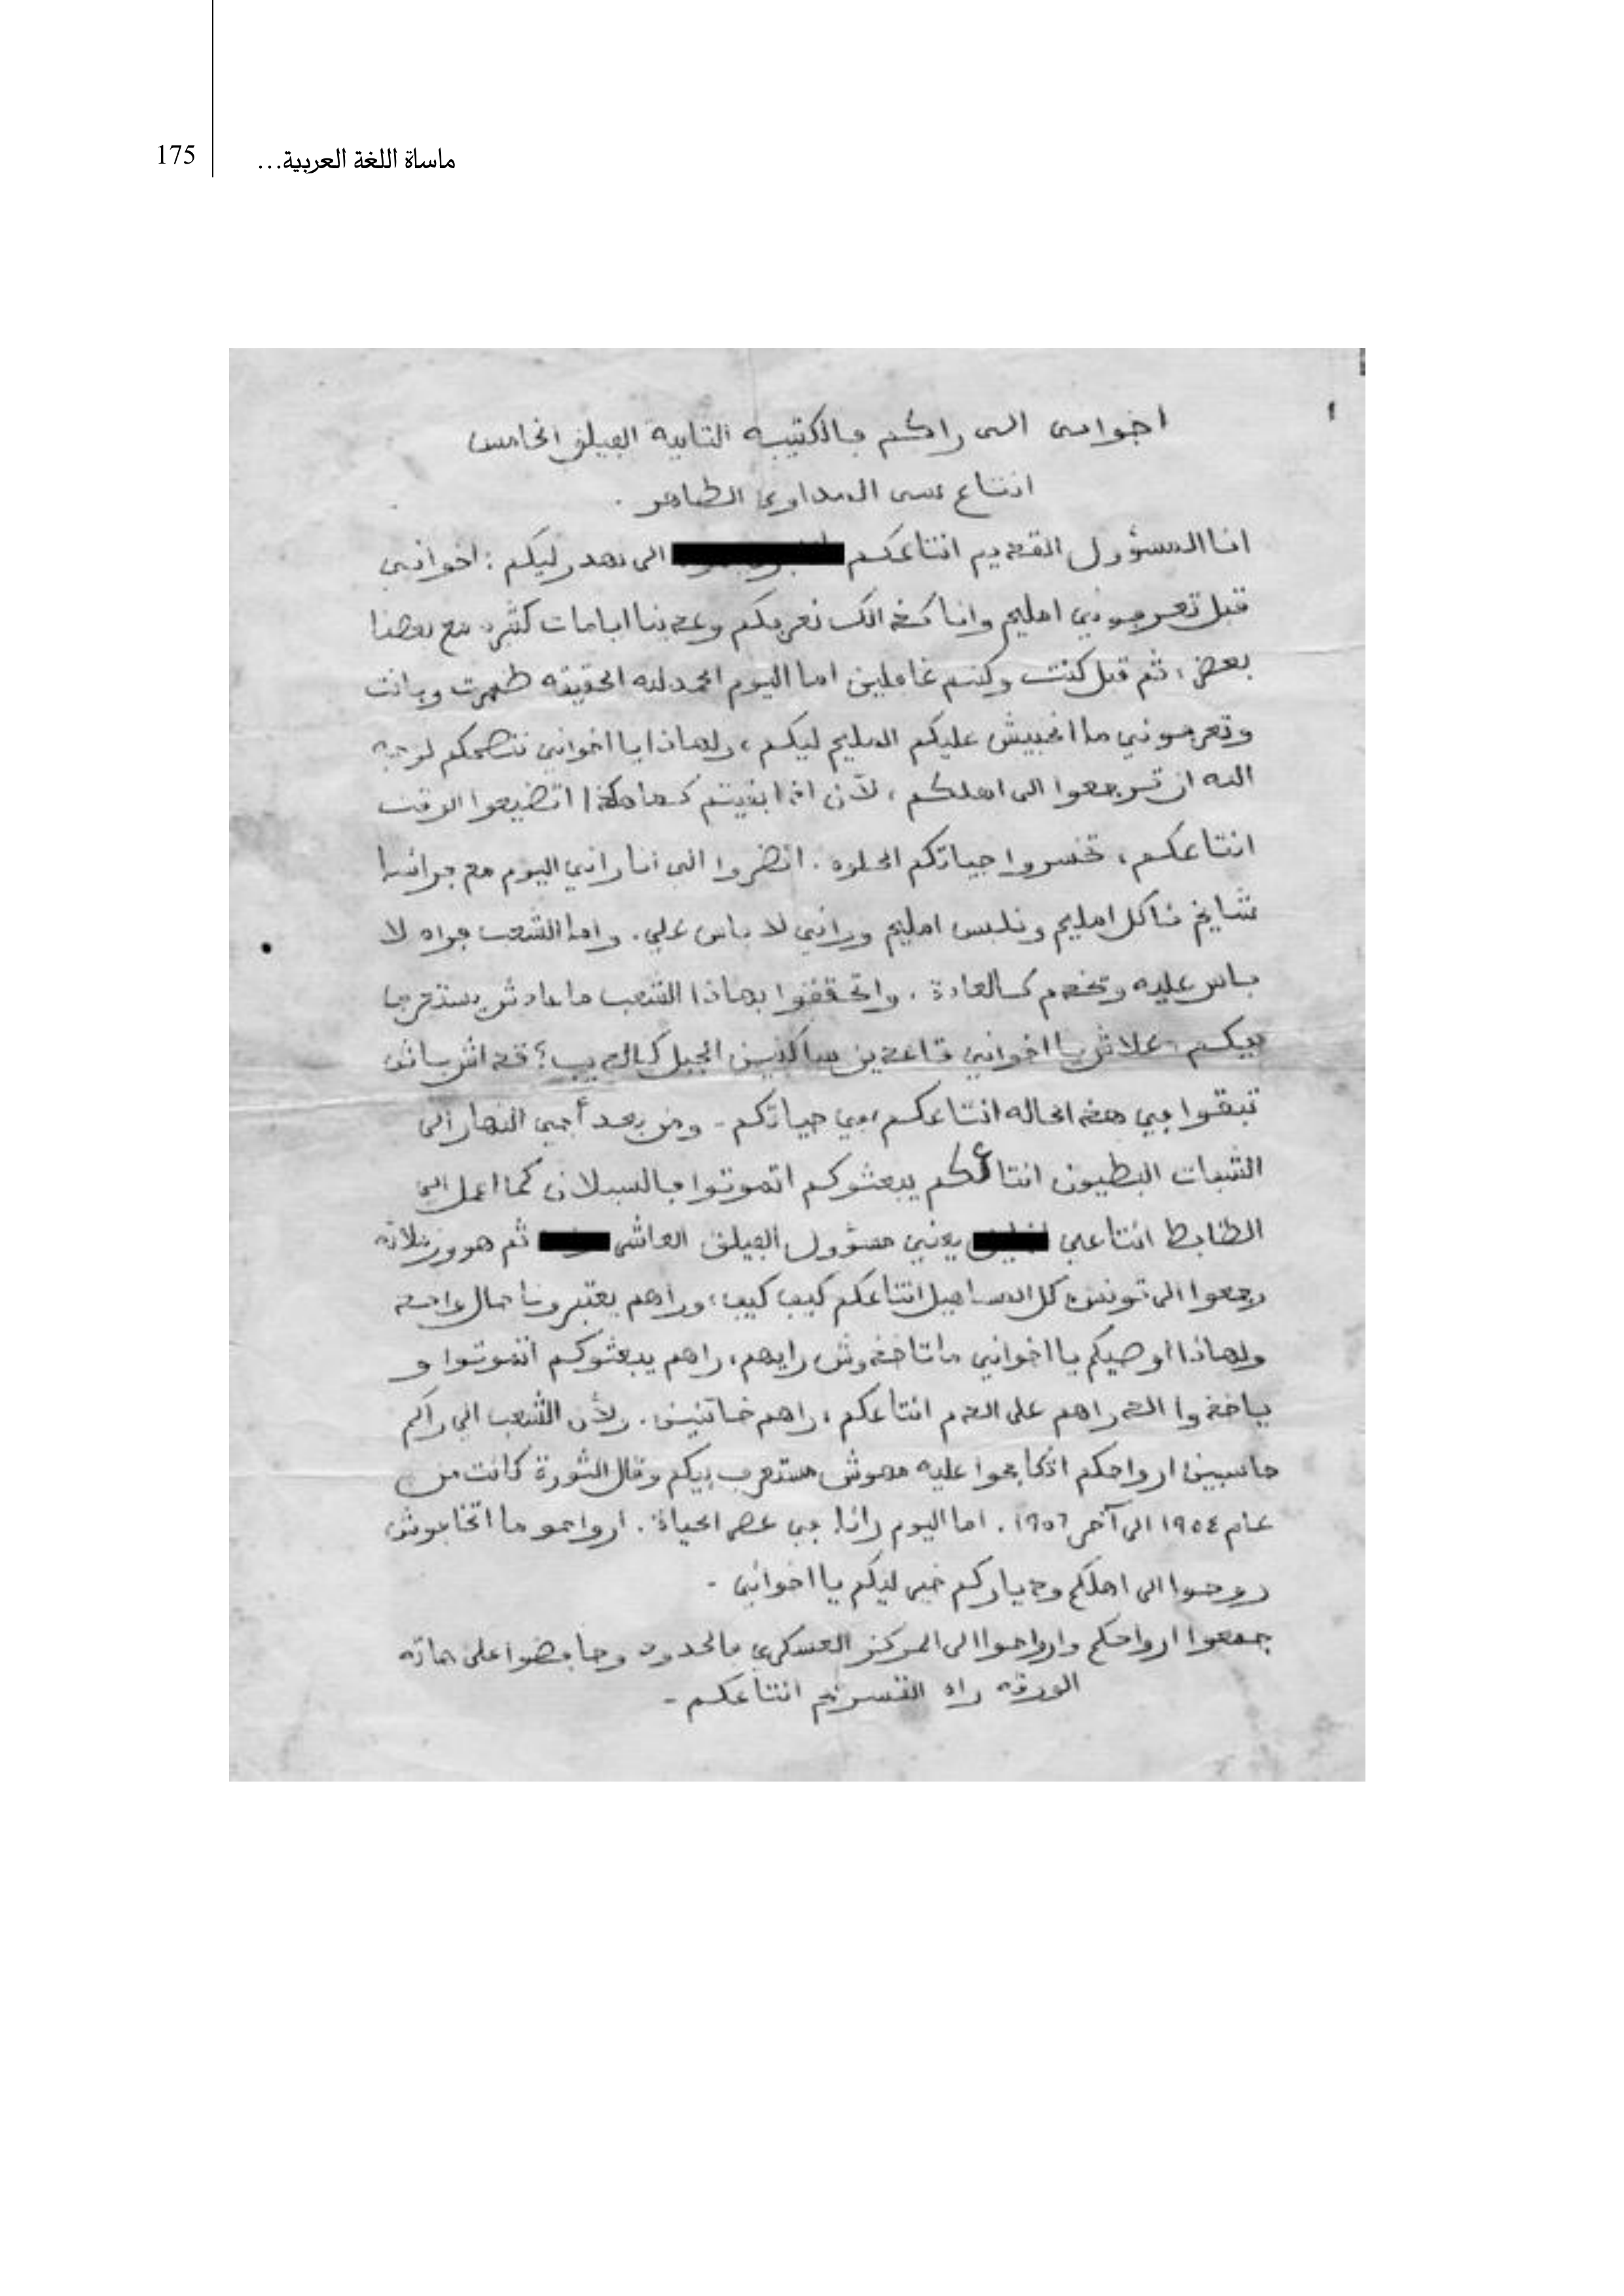 175
ماساة اللغة العربية...
اخواني الى راكم فالكتيبه الثانية الفيلق الخامس
انتاع سى المداوي الطاهر .
انا المسؤول القديم انتاعكم الى نهدر ليكم : اخواني
قبل تعرفوني امليح وانا كذالك نعرفكم وعدينا ايامات كثيره مع بعضنا
بعض ، ثم قبل كنت وكنتم غافلين اما اليوم الحمد لله الحقيقه ظهرت وبانت
وتعرفوني ما انخبيش عليكم المليح ليكم ، ولهاذا يا اخواني ننصحكم لوجه
الله ان ترجعوا الى اهلكم ، لأن اذا بقيتم كما هكذا اتضيعوا الوقت
انتاعكم ، تخسروا حياتكم الحلوه . انضروا الي انا راني اليوم مع فرانسا
شايخ ناكل امليح ونلبس امليح وراني لا باس علي . واما الشعب فراه لا
باس عليه وتخدم كالعادة . واتحققوا بهاذا الشعب ما عادش يستعرف
بيكم ، علاش يا اخواني قاعدين ساكنين الجبل كالديب ؟ قداش باش
تبقوا في هذه الحاله انتاعكم ، في حياتكم - ومن بعد أجي النهار الى
الشبات البطيون انتاعكم يبعثوكم اتموتوا فالسيلان كما اعمل الي
الظابط انتاعي يعني مسؤول الفيلق العاشر ثم هو وزملاته
رجعوا الى تونس ، كل المساهيل انتاعكم كيف كيف ، وراهم يعتبروننا حال واحده
ولهاذا اوصيكم يا اخواني ماتاخذوش رايهم ، راهم يبعثوكم اتموتوا و
ياخذوا الدراهم على الدم انتاعكم ، راهم خاتنين . ولأن الشعب الي راكم
حاسبين ارواحكم اتكافحوا عليه مهوش مستعرف بيكم وقال الثورة كانت من
عام ١٩٥٤ الى آخر ١٩٥٦ . اما اليوم رانا في عصر الحياة . ارواحو ما اتخافوش
روحوا الى اهلكم ودياركم خير ليكم يا اخواني -
جمعوا ارواحكم وارواحوا الى المركز العسكري فالحدود وحافضوا على هاته
الورقه راه التسريح انتاعكم -